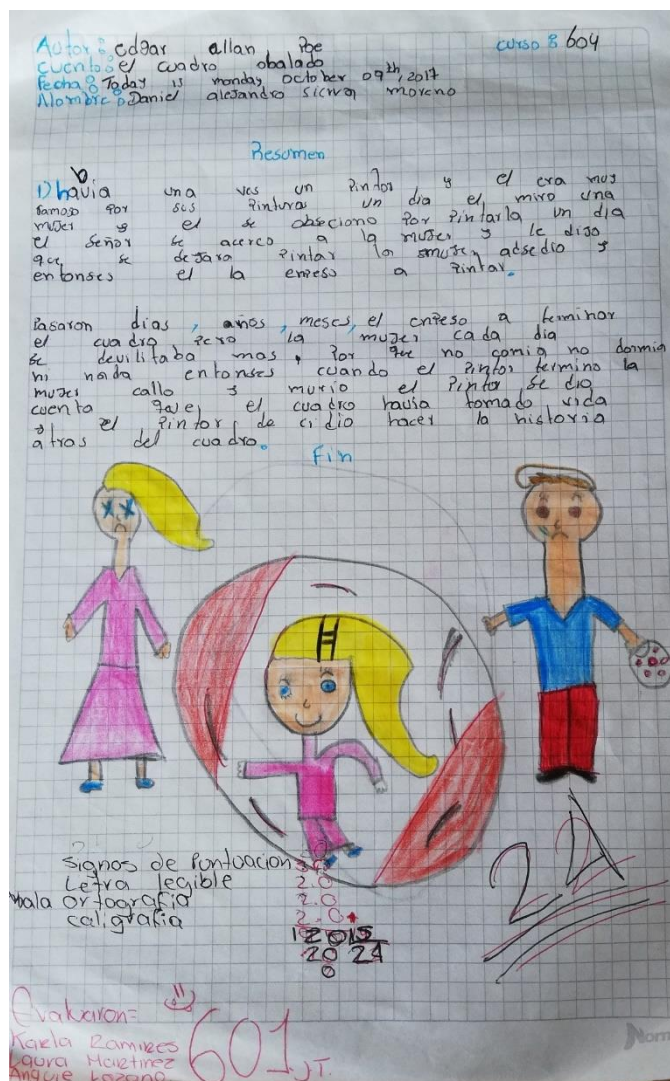 Autor: edgar allan Poe curso: 604
cuento: el cuadro obalado
Fecha: Today is monday October 09th, 2017
Nombre: Daniel alejandro moreno
Resumen
1) b
havia una ves un Pintor y el era muy
famoso Por sus Pinturas un dia el miro una
mujer y el se obseciono Por Pintarla un dia
el Señor se acerco a la mujer y le dijo
que se dejara Pintar la muger adsedio y
entonses el la enpeso a Pintar.
Pasaron dias, años, meses, el enpeso a terminar
el cuadro Pero la mujer cada dia
se devilitaba mas, Por que no comia no dormia
ni nada entonses cuando el Pintor termino la
mujer callo y murio el Pintor se dio
cuenta que el cuadro havia tomado vida
y el Pintor de cidio hacer la historia
atras del cuadro.
Fin
signos de Puntuacion
Letra legible 2.0
mala ortografia 2.0
caligrafia 2.0
20 24
0
2.4
Evaluaron=
Karla Ramires
Laura Martinez
Angie Lozano
601 J.T.
Norm